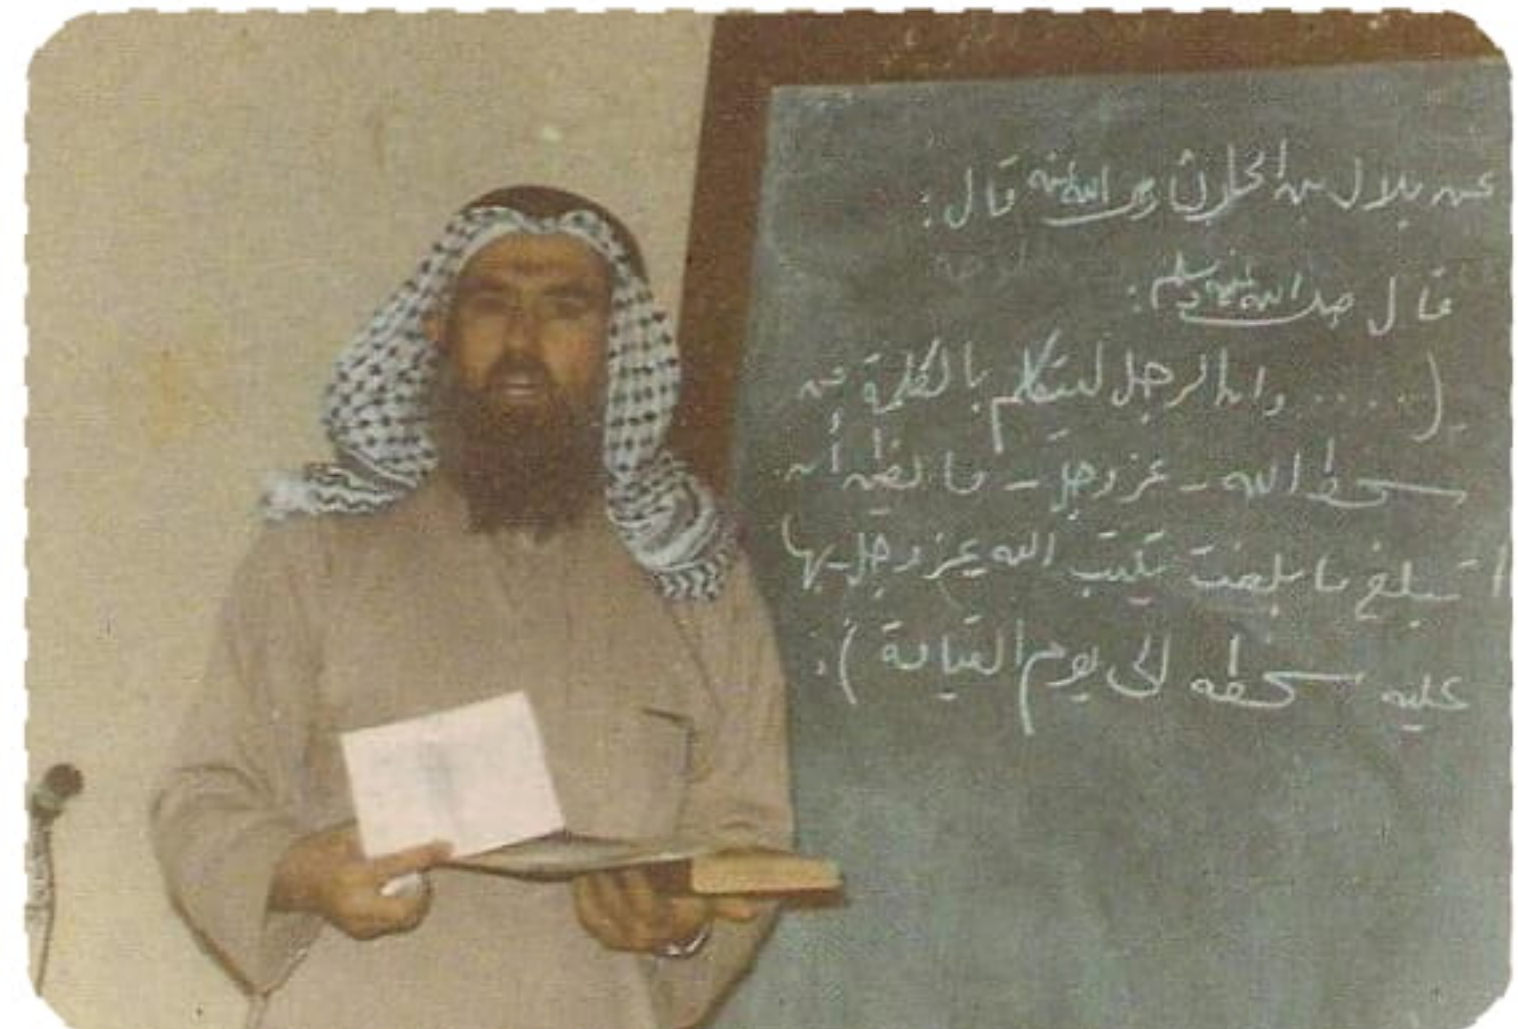 عن بلال بن الحارث رضي الله عنه قال:
قال صلى الله عليه وسلم:
(..... وان الرجل ليتكلم بالكلمة من
سخط الله - عز وجل - ما يظن أن
تبلغ ما بلغت يكتب الله عز وجل بها
عليه سخطه إلى يوم القيامة):